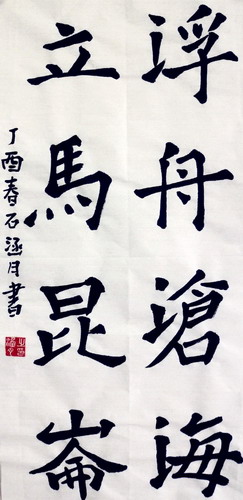 浮舟滄海
立馬昆崙
丁酉春石涵月書